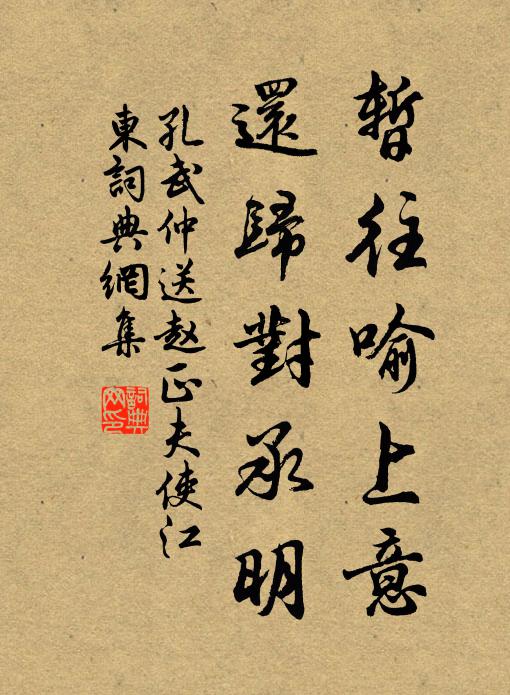 暫往喻上意
還歸對承明
孔武仲送赵正夫使江
東詞典網集
詞典
网印